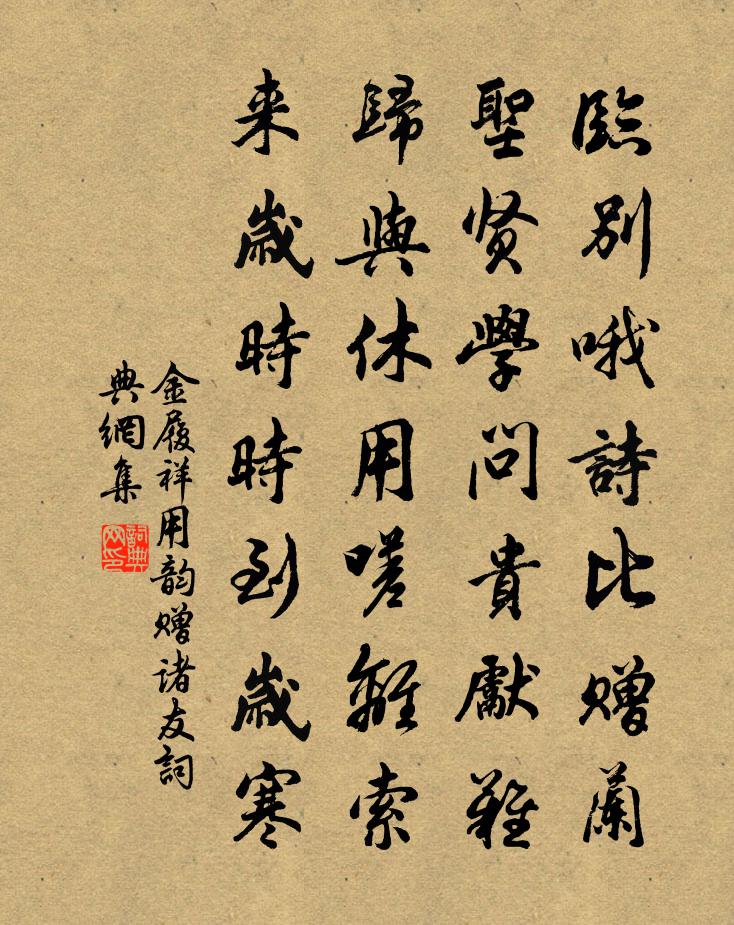 臨別哦詩比贈蘭
聖贤學問貴獻難
歸與休用嗟離索
来歲時時到歲寒
金履祥用韵贈诸友詞
典網集
詞典网印